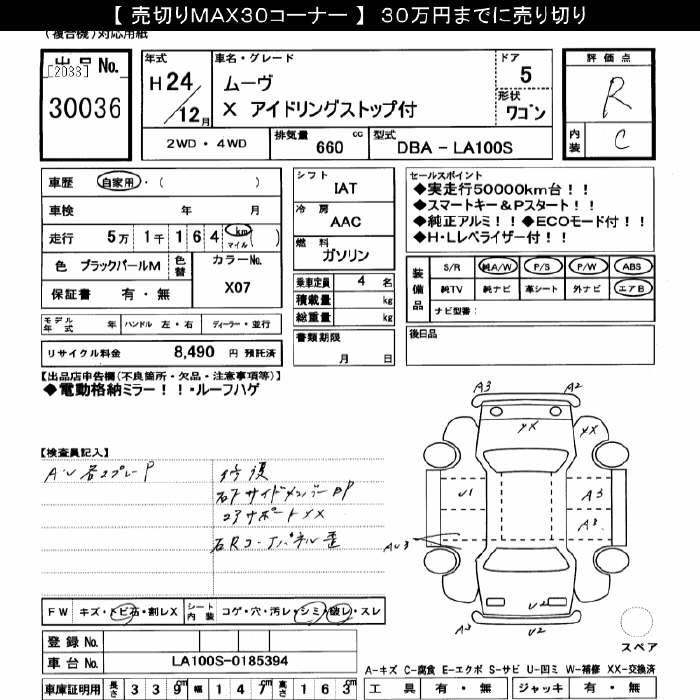 【 売切りMAX30コーナー 】 30万円までに売り切り
(複合機)対応用紙
出品 No.
[2033]
30036
年式 車名・グレード ドア 評価点
H24/12月 ムーヴ 5 R
X アイドリングストップ付 形状 ワゴン
内装 C
2WD・4WD 排気量 660 cc 型式 DBA - LA100S
車歴 自家用・( )
車検 年 月
走行 5万 1千 1 6 4 km マイル ( )
色 ブラックパールM 色替 カラーNo. X07
保証書 有・無
シフト IAT
冷房 AAC
燃料 ガソリン
乗車定員 4 名
積載量 kg
総重量 kg
書類期限
月 日
セールスポイント
◆実走行50000km台!!
◆スマートキー&Pスタート!!
◆純正アルミ!!◆ECOモード付!!
◆H・Lレベライザー付!!
装備品 S/R 純A/W P/S P/W ABS
純TV 純ナビ 革シート 外ナビ エアB
ナビ型番:
後日品
モデル年式 年 ハンドル 左・右 ディーラー・並行
リサイクル料金 8,490 円 預託済
【出品店申告欄(不良箇所・欠品・注意事項等)】
◆電動格納ミラー!!・ルーフハゲ
【検査員記入】
修復
A3 A2
XX XX
U1 A3
A3
U2
A3 U2
FW キズ・トビ石・割レX シート内装 コゲ・穴・汚レ・シミ・破レ・スレ
登録 No.
車台 No. LA100S-0185394
車庫証明用 長さ 3 3 9 cm 幅 1 4 7 cm 高さ 1 6 3 cm
スペア
A-キズ C-腐食 E-エクボ S-サビ U-凹ミ W-補修 XX-交換済
工具 有・無 ジャッキ 有・無